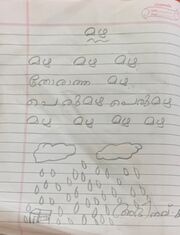 മഴ
മഴ മഴ മഴ
തോരാത്ത മഴ
പെരുമഴ പെരുമഴ
മഴ മഴ മഴ മഴ